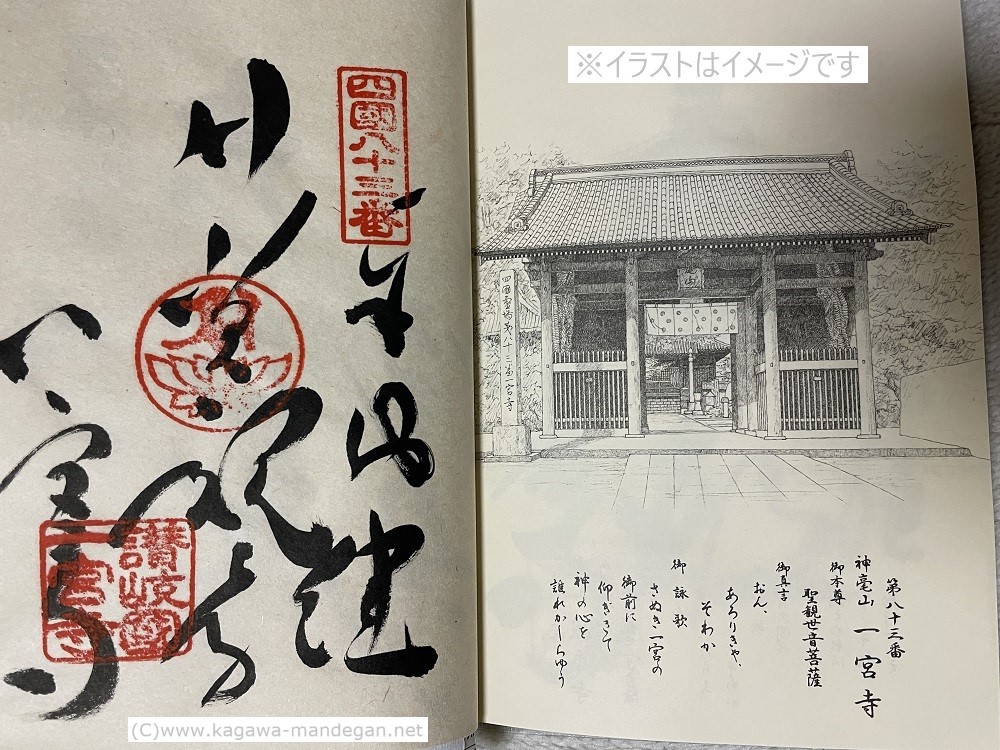 ※イラストはイメージです
四國霊場第八十三番一宮寺
第八十三番
神毫山 一宮寺
御本尊
聖観世音菩薩
御真言
おん、
あろりきゃ、
そわか
御詠歌
さぬき一宮の
御前に
仰ぎきて
神の心を
誰れかしらゆう
四國八十三番
讃岐
一宮寺
(C)www.kagawa-mandegan.net